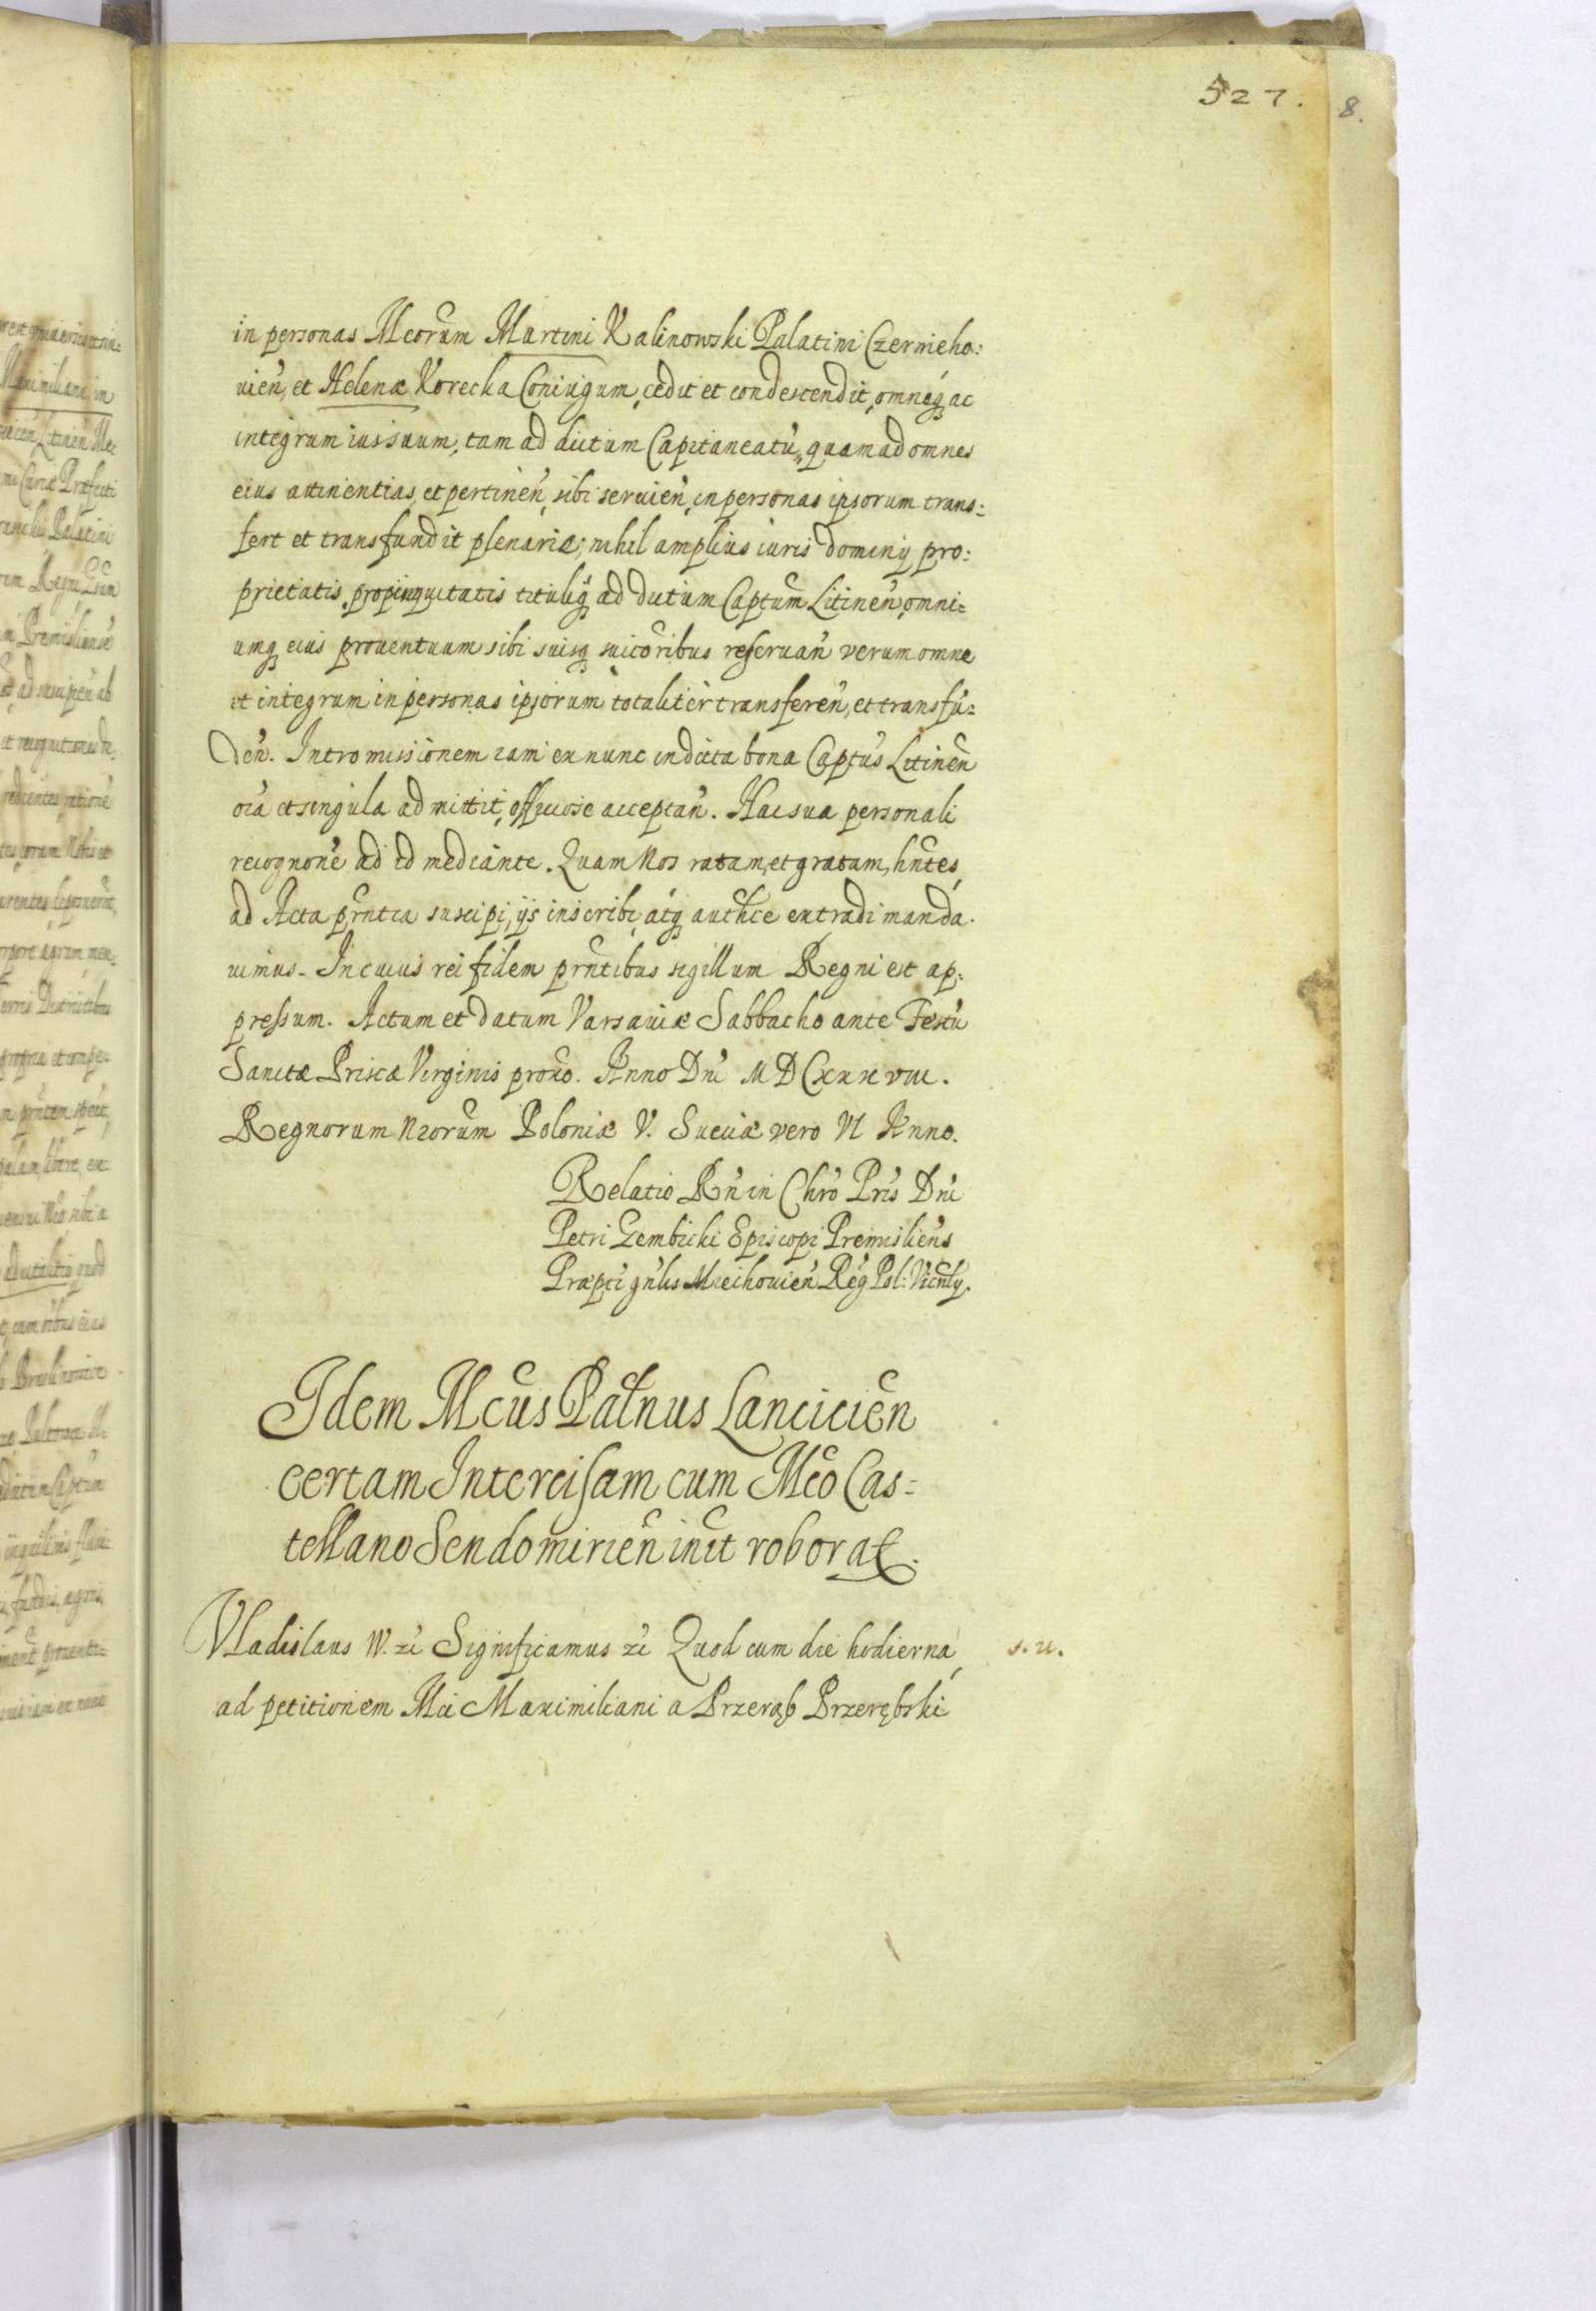 527.
8.
in personas Mcorum Martini Kalinowski Palatini Czernieho:
uien, et Helenæ Korecka Coniugum, cedit et condescendit, omneq ac
integrum ius suum, tam ad dictum Capitaneatu, quam ad omnes
eius attinentias, et pertinen, sibi seruien, in personas ipsorum trans:
fert et transfundit plenarie; nihil amplius iuris dominij pro:
prietatis, propinquitatis tituliq ad dictum Captum Litinen, omni=
umq eius prouentuum sibi suisq succoribus reseruan verum omne
et integrum in personas ipsorum totaliter transferen, et transfu=
den. Intromissionem iam ex nunc in dicta bona Captus Litinen
oia et singula admittit, officiose acceptan. Hac sua personali
recognone ad id mediante. Quam Nos ratam, et gratam, hntes,
ad Acta prntia suscipi, ijs inscribi, atq authce extradi manda.
uimus. In cuius rei fidem prntibus sigillum Regni est ap:
pressum. Actum et datum Varsauiæ Sabbatho ante Festu
Sanctæ Priscæ Virginis proxo. Anno Dni MDCxxxviii.
Regnorum Nrorum Poloniæ V. Sueciæ vero VI Anno.
Relatio Rn in Chro Pris Dni
Petri Gembicki Episcopi Premisliens
Præpti gnlis Miechouien Reg Pol: Vicnlij.
Idem Mcus Patnus Lancicien
certam Intercisam cum Mco Cas=
tellano Sendomirien init roborat.
Vladislaus IV. zc Significamus zc Quod cum die hodierna,
s. u.
ad petitionem Mci Maximiliani a Przeręb Przerębski